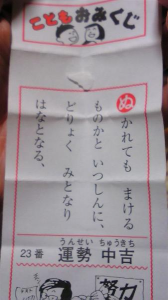 こどもおみくじ
ぬかれても まける
ものかと いつしんに、
どりょく みとなり
はなとなる、
23番 運勢 中吉
うんせい ちゅうきち
努力